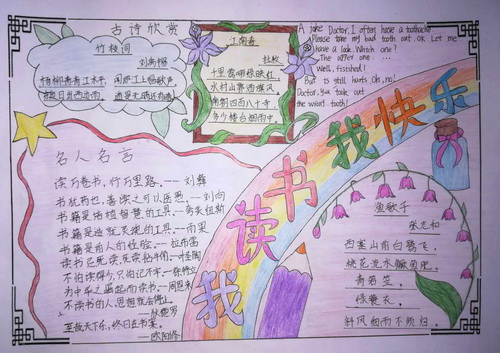 古诗欣赏
竹枝词
刘禹锡
杨柳青青江水平
闻郎江上唱歌声
江南春
杜牧
千里莺啼绿映红
水村山郭酒旗风
南朝四百八十寺
多少楼台烟雨中
A joke Doctor, I often have a toothache
Please take my bad tooth out. OK Let me
have a look. Which one?
The after one ...
Well, finished!
But is still hurts Oh, no!
Doctor, you took out
the wrong tooth!
我读书我快乐
名人名言
读万卷书，行万里路。——刘彝
书犹药也，善读之可以医愚。——刘向
书籍是培植智慧的工具。——夸美纽斯
书籍是造就灵魂的工具。——雨果
书籍是前人的经验。——拉布雷
读书已死读死读必
不怕读得少，只怕记不牢。——徐特立
为中华之崛起而读书。——周恩来
不读书的人思想就会停止。
——狄德罗
至哉天下乐，终日在书案。
——欧阳修
渔歌子
张志和
西塞山前白鹭飞
桃花流水鳜鱼肥。
青箬笠，
绿蓑衣，
斜风细雨不须归。